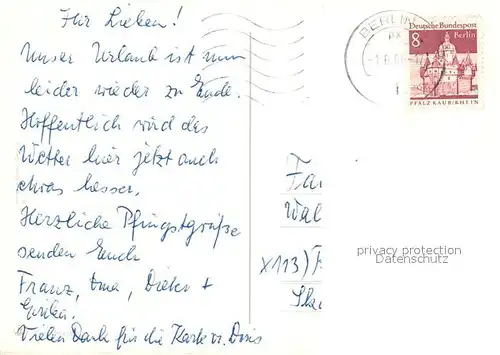 Ihr Lieben!
Unser Urlaub ist nun
leider wieder zu Ende.
Hoffentlich wird das
Wetter hier jetzt auch
etwas besser.
Herzliche Pfingstgrüße
senden Euch
Franz, Oma, Dieter +
Erika.
Vielen Dank für die Karte v. Doris
BERLIN
Deutsche Bundespost
8 Berlin
PFALZ KAUB/RHEIN
Fa
Wal
X113)
privacy protection
Datenschutz